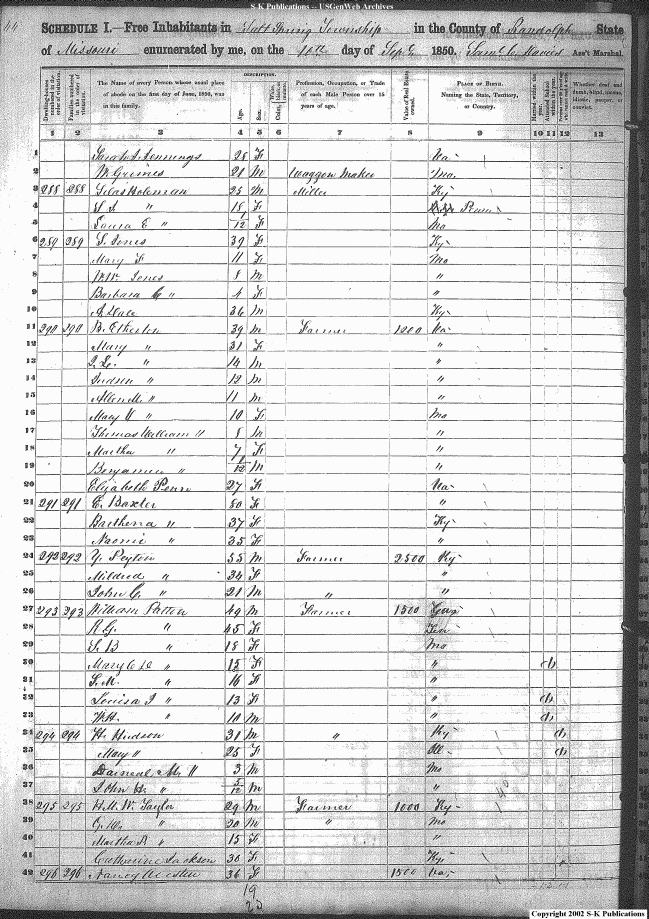 S-K Publications -- USGenWeb Archives
44
SCHEDULE I.—Free Inhabitants in Salt Spring Township in the County of Randolph State
of Missouri enumerated by me, on the day of Sept 1850. Ass't Marshal.
Dwelling-houses numbered in the order of visitation.
Families numbered in the order of visitation.
The Name of every Person whose usual place of abode on the first day of June, 1850, was in this family.
DESCRIPTION.
Age.
Sex.
White, black, or mulatto.
Profession, Occupation, or Trade of each Male Person over 15 years of age.
Value of Real Estate owned.
PLACE OF BIRTH. Naming the State, Territory, or Country.
Married within the year.
Whether deaf and dumb, blind, insane, idiotic, pauper, or convict.
1 2 3 4 5 6 7 8 9 10 11 12 13
1 Jennings 28 F Va
2 W. Grimes 21 M Waggon Maker Mo.
3 288 288 Silas Holeman 25 M Miller Ky
4 " 18 F Penn
5 Laura E " 1/12 F Mo
6 289 289 S. Jones 39 F Ky
7 Mary F 11 F Mo
8 Wm Jones 8 M "
9 Barbara C " 4 F "
10 A. Hale 36 M Ky
11 290 290 B. Etherton 39 M Farmer 1200 Va
12 Mary " 31 F "
13 " 14 M "
14 Judson " 12 M "
15 Allen M. " 11 M "
16 Mary V " 10 F Mo
17 Thomas William " 8 M "
18 Martha " 7 F "
19 Benjamin " 1/12 M "
20 Elizabeth Penn 27 F Va
21 291 291 E. Baxter 80 F "
22 Barthena " 37 F Ky
23 Naomi " 35 F "
24 292 292 Y. Peyton 55 M Farmer 2500 Ky
25 Mildred " 34 F "
26 John C. " 21 M " "
27 293 293 William Patton 49 M Farmer 1500
28 R.G. " 45 F Ten
29 S. B " 18 F Mo
30 Mary " 15 F "
31 S. M. " 16 F "
32 Louisa J " 13 F "
33 W.H. " 10 M "
34 294 294 H. Hudson 31 M " Ky
35 Mary " 25 F Ill
36 M. " 3 M Mo
37 John H. " 5/12 M "
38 295 295 H.M.W. Taylor 29 M Farmer 1000 Ky
39 " 20 M " Mo
40 Martha A " 15 F "
41 Catharine Jackson 30 F Ky
42 296 296 Nancy 36 F 1500 Va
19
23
Copyright 2002 S-K Publications